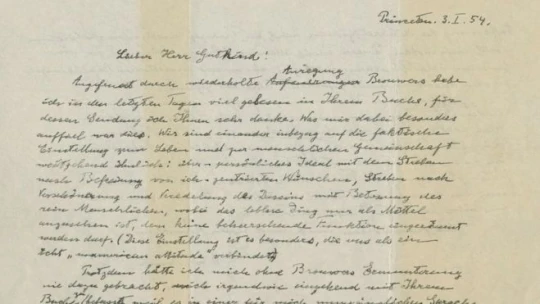 Princeton. 3. I. 54.
Lieber Herr Gutkind!
Anregung
Angefeuert durch wiederholte Brouwers habe
ich in den letzten Tagen viel gelesen in Ihrem Buche, für
dessen Sendung ich Ihnen sehr danke. Was mir dabei besonders
auffiel war dies. Wir sind einander inbezug auf die faktische
Einstellung zum Leben und zur menschlichen Gemeinschaft
weitgehend ähnlich: persönliches Ideal mit dem Streben
nach Befreiung von ich-zentrierten Wünschen, Streben nach
Verschönerung und Veredelung des Daseins mit Betonung des
rein Menschlichen, wobei das leblose Ding nur als Mittel
anzusehen ist, dem keine beherrschende Funktion eingeräumt
werden darf. (Diese Einstellung ist es besonders, die uns als ein
echt "unamerican attitude" verbindet)
Trotzdem hätte ich mich ohne Brouwers Ermunterung
nie dazu gebracht, mich irgendwie eingehend mit Ihrem
Buch weil es in einer für mich Sprache